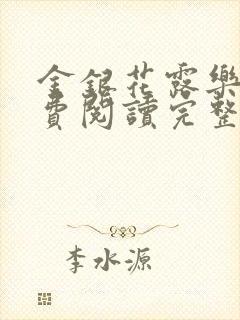 金銀花露樂
費閱讀完整
李水源